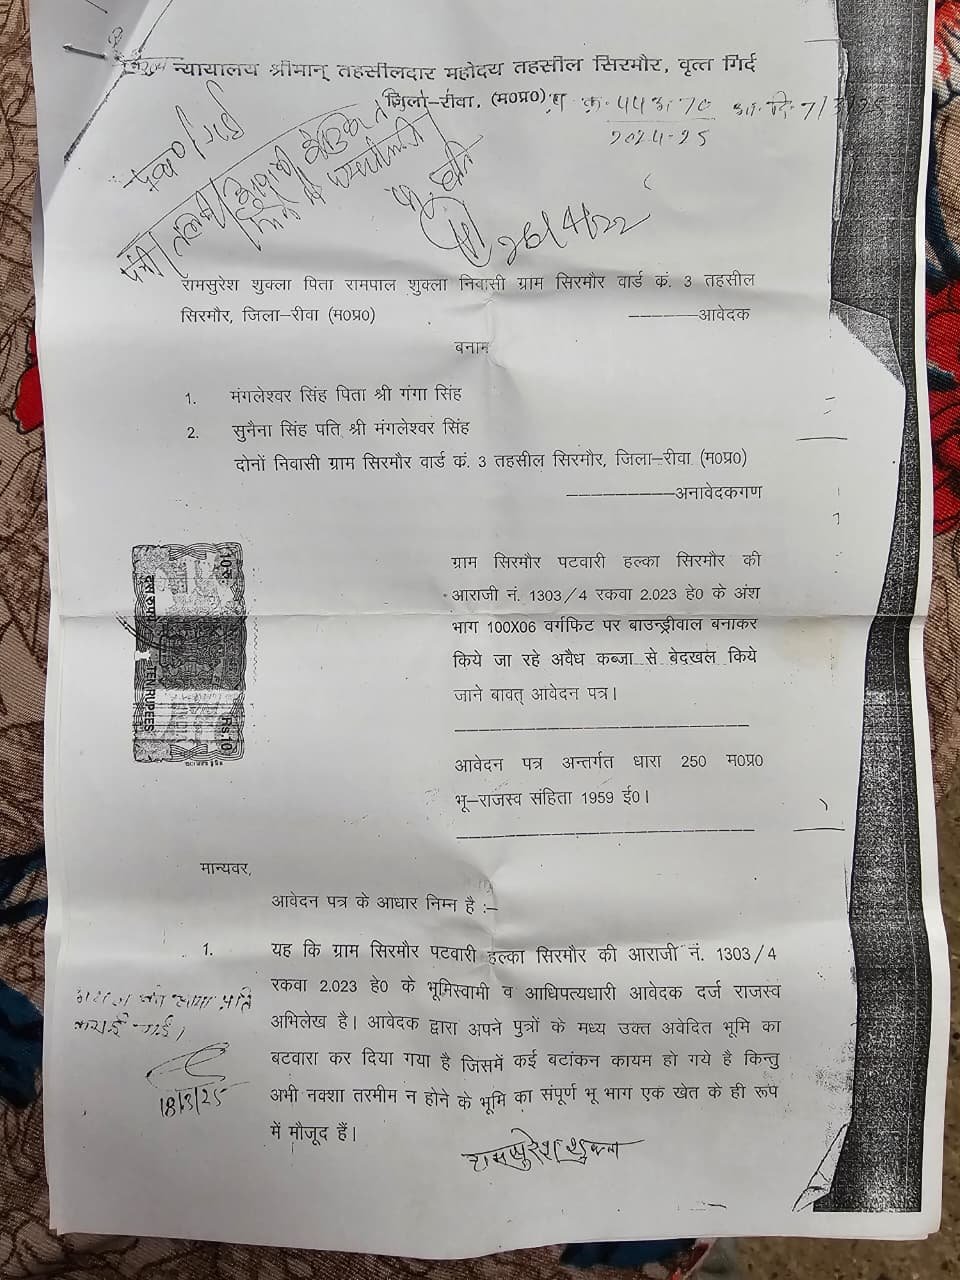 न्यायालय श्रीमान् तहसीलदार महोदय तहसील सिरमौर, वृत्त गिर्द
जिला–रीवा, (म0प्र0)
2024-25
26/4/22
रामसुरेश शुक्ला पिता रामपाल शुक्ला निवासी ग्राम सिरमौर वार्ड कं. 3 तहसील
सिरमौर, जिला–रीवा (म0प्र0) ––––––आवेदक
बनाम
1. मंगलेश्वर सिंह पिता श्री गंगा सिंह
2. सुनैना सिंह पति श्री मंगलेश्वर सिंह
दोनों निवासी ग्राम सिरमौर वार्ड कं. 3 तहसील सिरमौर, जिला–रीवा (म0प्र0)
–––––––––अनावेदकगण
ग्राम सिरमौर पटवारी हल्का सिरमौर की
आराजी नं. 1303/4 रकवा 2.023 हे0 के अंश
भाग 100X06 वर्गफिट पर बाउन्ड्रीवाल बनाकर
किये जा रहे अवैध कब्जा से बेदखल किये
जाने बावत् आवेदन पत्र।
TEN RUPEES
Rs.10
आवेदन पत्र अन्तर्गत धारा 250 म0प्र0
भू–राजस्व संहिता 1959 ई0।
मान्यवर,
आवेदन पत्र के आधार निम्न है :–
1. यह कि ग्राम सिरमौर पटवारी हल्का सिरमौर की आराजी नं. 1303/4
रकवा 2.023 हे0 के भूमिस्वामी व आधिपत्यधारी आवेदक दर्ज राजस्व
अभिलेख है। आवेदक द्वारा अपने पुत्रों के मध्य उक्त अवेदित भूमि का
बटवारा कर दिया गया है जिसमें कई बटांकन कायम हो गये है किन्तु
अभी नक्शा तरमीम न होने के भूमि का संपूर्ण भू भाग एक खेत के ही रूप
में मौजूद हैं।
18/3/25
रामसुरेश शुक्ला